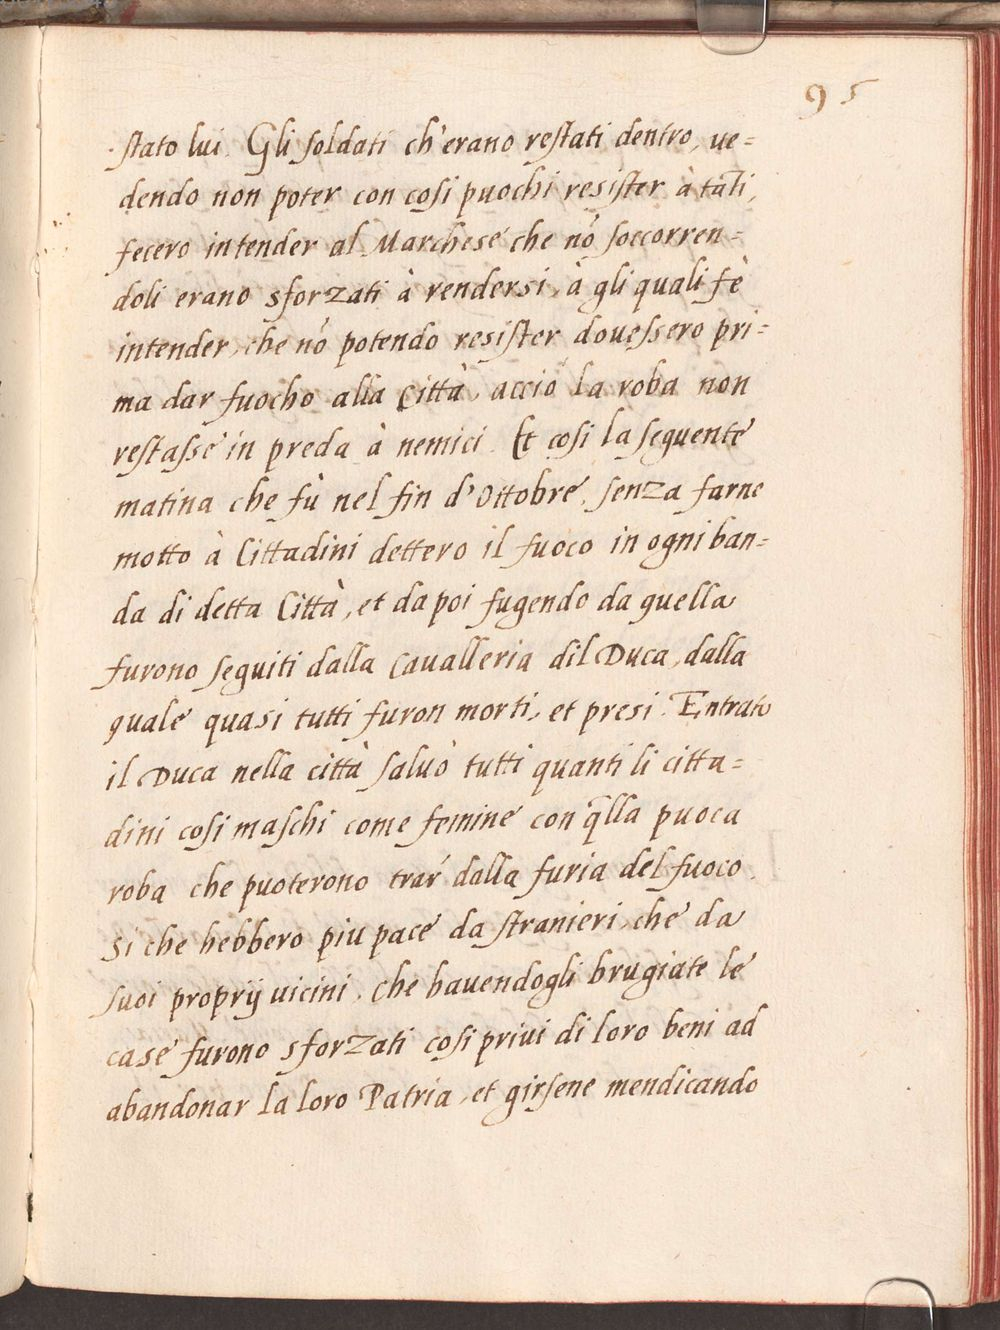 95
stato lui. Gli soldati ch'erano restati dentro, ue=
dendo non poter con cosi puochi resister à tali,
fecero intender al Marchese che nō soccorren=
doli erano sforzati à rendersi, à gli quali fè
intender, che nō potendo resister douessero pri=
ma dar fuocho alla Città, acciò la roba non
restasse in preda à nemici. Et cosi la sequente
matina che fù nel fin d'Ottobre, senza farne
motto à Cittadini dettero il fuoco in ogni ban=
da di detta Città, et da poi fugendo da quella
furono seguiti dalla Cavalleria dil Duca, dalla
quale quasi tutti furon morti, et presi. Entrato
il Duca nella città saluò tutti quanti li citta=
dini cosi maschi come femine con q̄lla puoca
roba che puoterono trar dalla furia del fuoco.
Si che hebbero piu pace da stranieri, che da
suoi proprij uicini, che hauendogli brugiate le
case furono sforzati cosi priui di loro beni ad
abandonar la loro Patria, et girsene mendicando